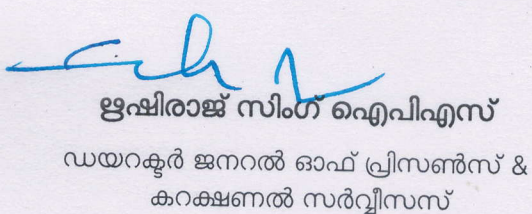 ഋഷിരാജ് സിംഗ് ഐപിഎസ്
ഡയറക്ടർ ജനറൽ ഓഫ് പ്രിസൺസ് &
കറക്ഷണൽ സർവ്വീസസ്